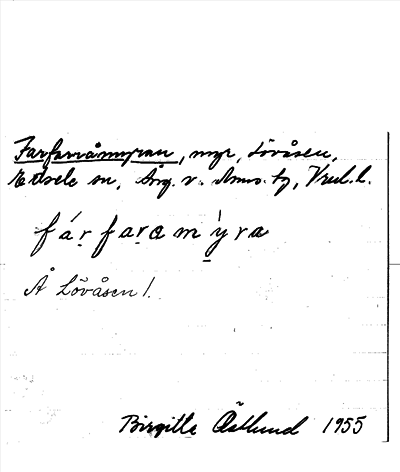 Farfarsåmyran, myr, Lövåsen,
Edsele sn, Ång. v. doms. tg, Vrul. l.
fá̀r̥faram`y̠ra
Å Lövåsen 1.
Birgitte Östlund 1955